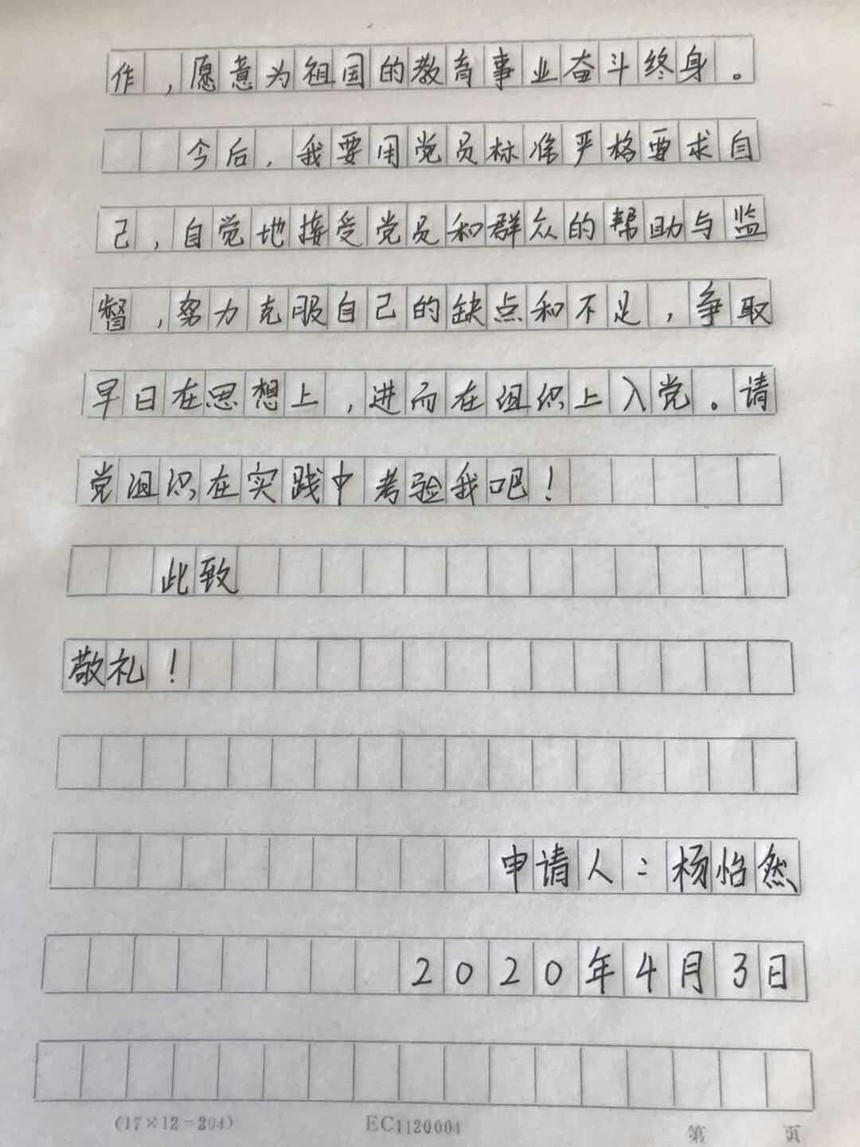 作，愿意为祖国的教育事业奋斗终身。
今后，我要用党员标准严格要求自
己，自觉地接受党员和群众的帮助与监
督，努力克服自己的缺点和不足，争取
早日在思想上，进而在组织上入党。请
党组织在实践中考验我吧！
此致
敬礼！
申请人：杨怡然
2020年4月3日
(17×12=204) EC1120004 第 页